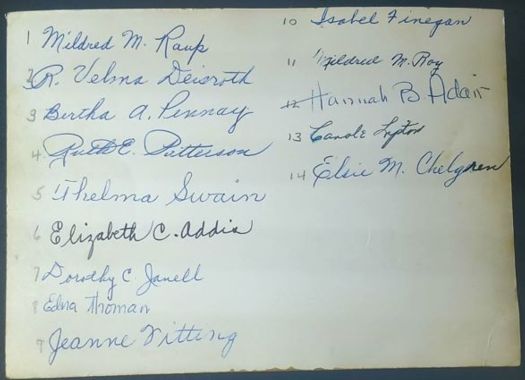 1 Mildred M. Raup
2 R. Velma Deisroth
3 Bertha A. Pennay
4. Ruth E. Patterson
5 Thelma Swain
6 Elizabeth C. Addis
7 Dorothy C Janell
8 Edna Thoman
9 Jeanne Vitting
10 Isabel Finegan
11 Mildred M. Roy
12 Hannah B Adair
13 Carole Lypton
14 Elsie M. Chelgren